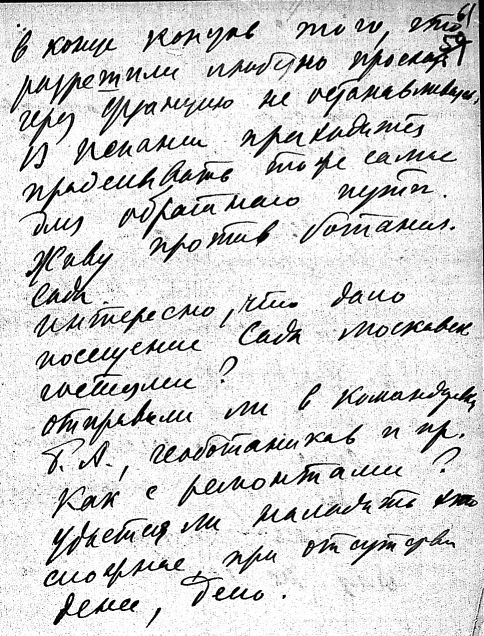 61
59
в конце концов того, что
разрешили любезно проехать
через Францию не останавливаясь,
Из Испании приходится
проделывать то же самое
для обратного пути.
Живу против ботанич.
сада.
интересно, что дало
посещение Сада московск
гостями?
отправили ли в командировку
Г. А., геоботаников и пр.
Как с ремонтами?
удастся ли наладить это
сложное, при отсутствии
денег, дело.